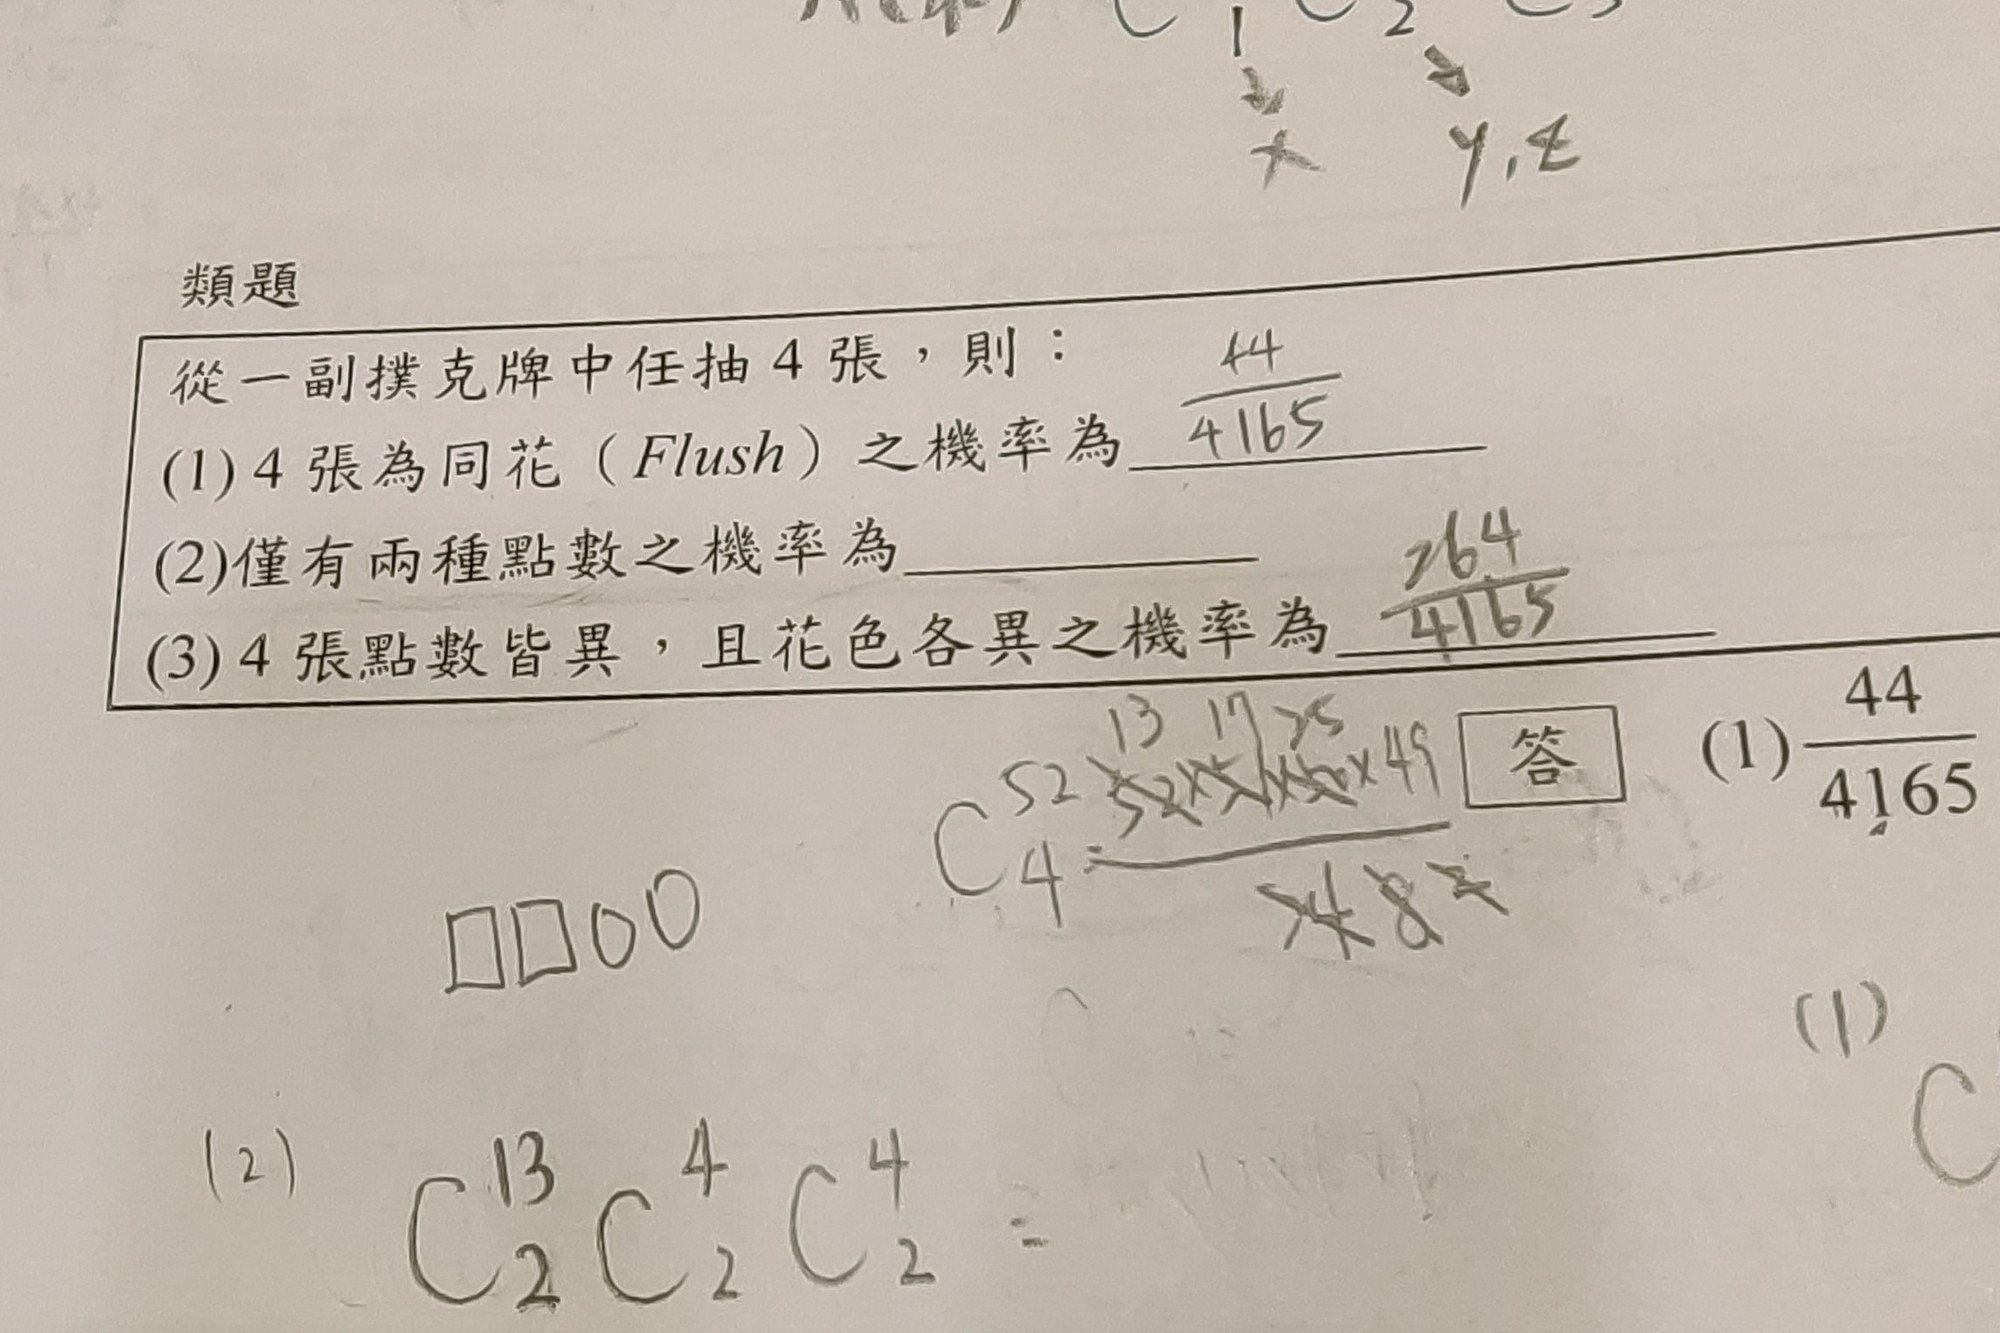 x y, z
類題
從一副撲克牌中任抽 4 張，則：
(1) 4 張為同花（Flush）之機率為 44/4165
(2)僅有兩種點數之機率為
(3) 4 張點數皆異，且花色各異之機率為 264/4165
答 (1) 44/4165
13 17 25
C 52 4 = 52×51×50×49
□□00
(1)
C
(2) C 13 2 C 4 2 C 4 2 =